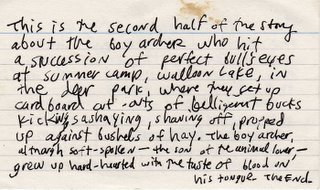 This is the second half of the story
about the boy archer who hit
a succession of perfect bullseyes
at summer camp, Walloon Lake, in
the deer park, where they set up
cardboard cut-outs of belligerent bucks
kicking, sashaying, showing off, propped
up against bushels of hay. The boy archer,
although soft-spoken — the son of the animal lover —
grew up hard-hearted with the taste of blood on
his tongue. The End.